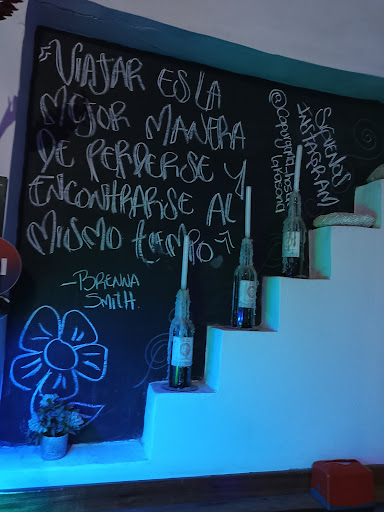 "VIAJAR ES LA
MEJOR MANERA
DE PERDERSE Y
ENCONTRARSE AL
MISMO tiEMPO"
-BRENNA
SMITH.
SIGUENOS
INSTAGRAM